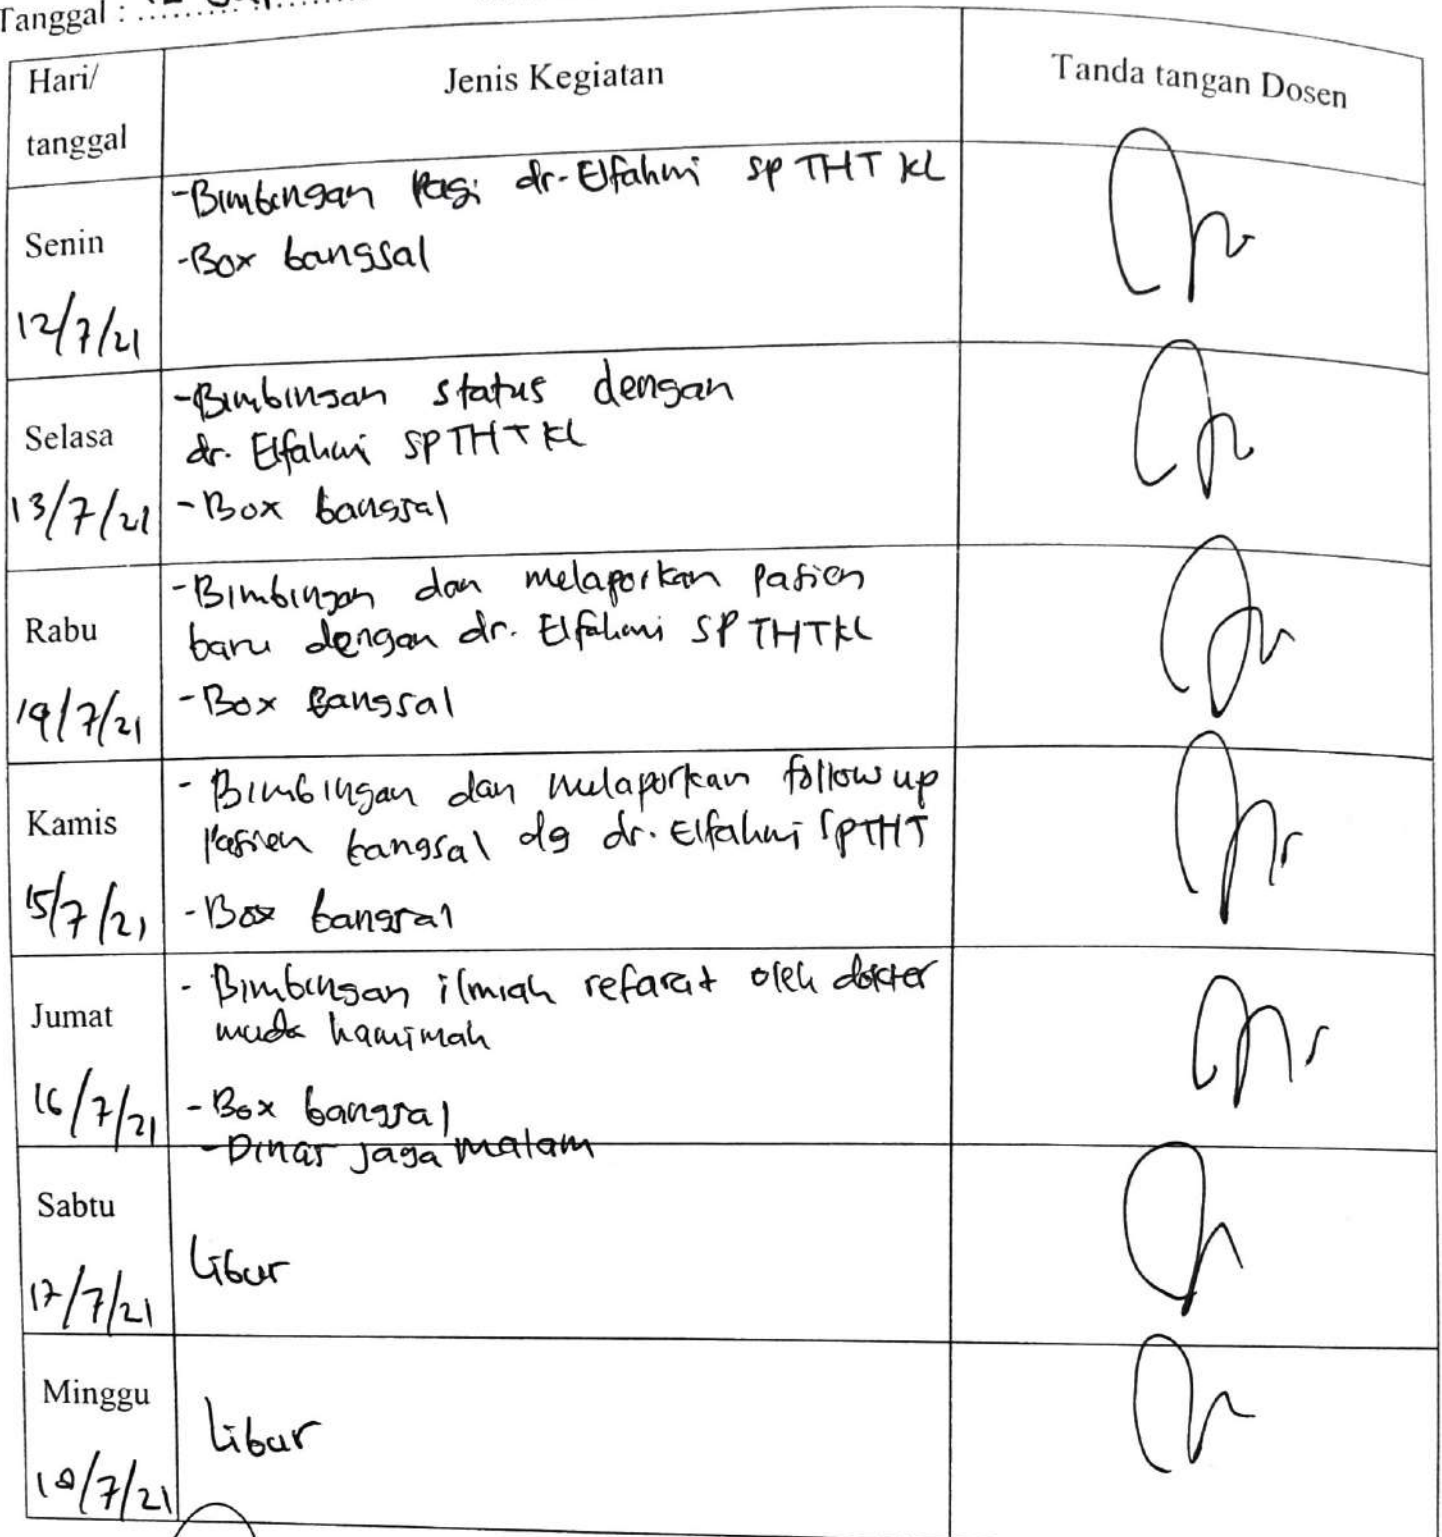 Tanggal :
Hari/
tanggal
Jenis Kegiatan
Tanda tangan Dosen
Senin
12/7/21
-Bimbingan Pagi dr. Elfahmi SP THT KL
-Box bangsal
Selasa
13/7/21
-Bimbingan status dengan
dr. Elfahmi SP THT KL
-Box bangsal
Rabu
14/7/21
-Bimbingan dan melaporkan pasien
baru dengan dr. Elfahmi SP THTKL
-Box Bangsal
Kamis
15/7/21
- Bimbingan dan melaporkan follow up
Pasien bangsal dg dr. Elfahmi SPTHT
-Box bangsal
Jumat
16/7/21
- Bimbingan ilmiah refarat oleh dokter
muda hamimah
-Box bangsal
-Dinas jaga malam
Sabtu
17/7/21
Libur
Minggu
18/7/21
Libur